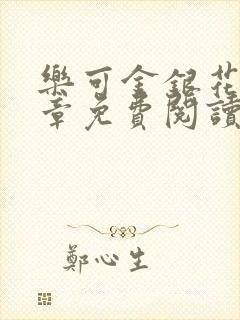 樂可金銀花
章免費閱讀
鄭心生